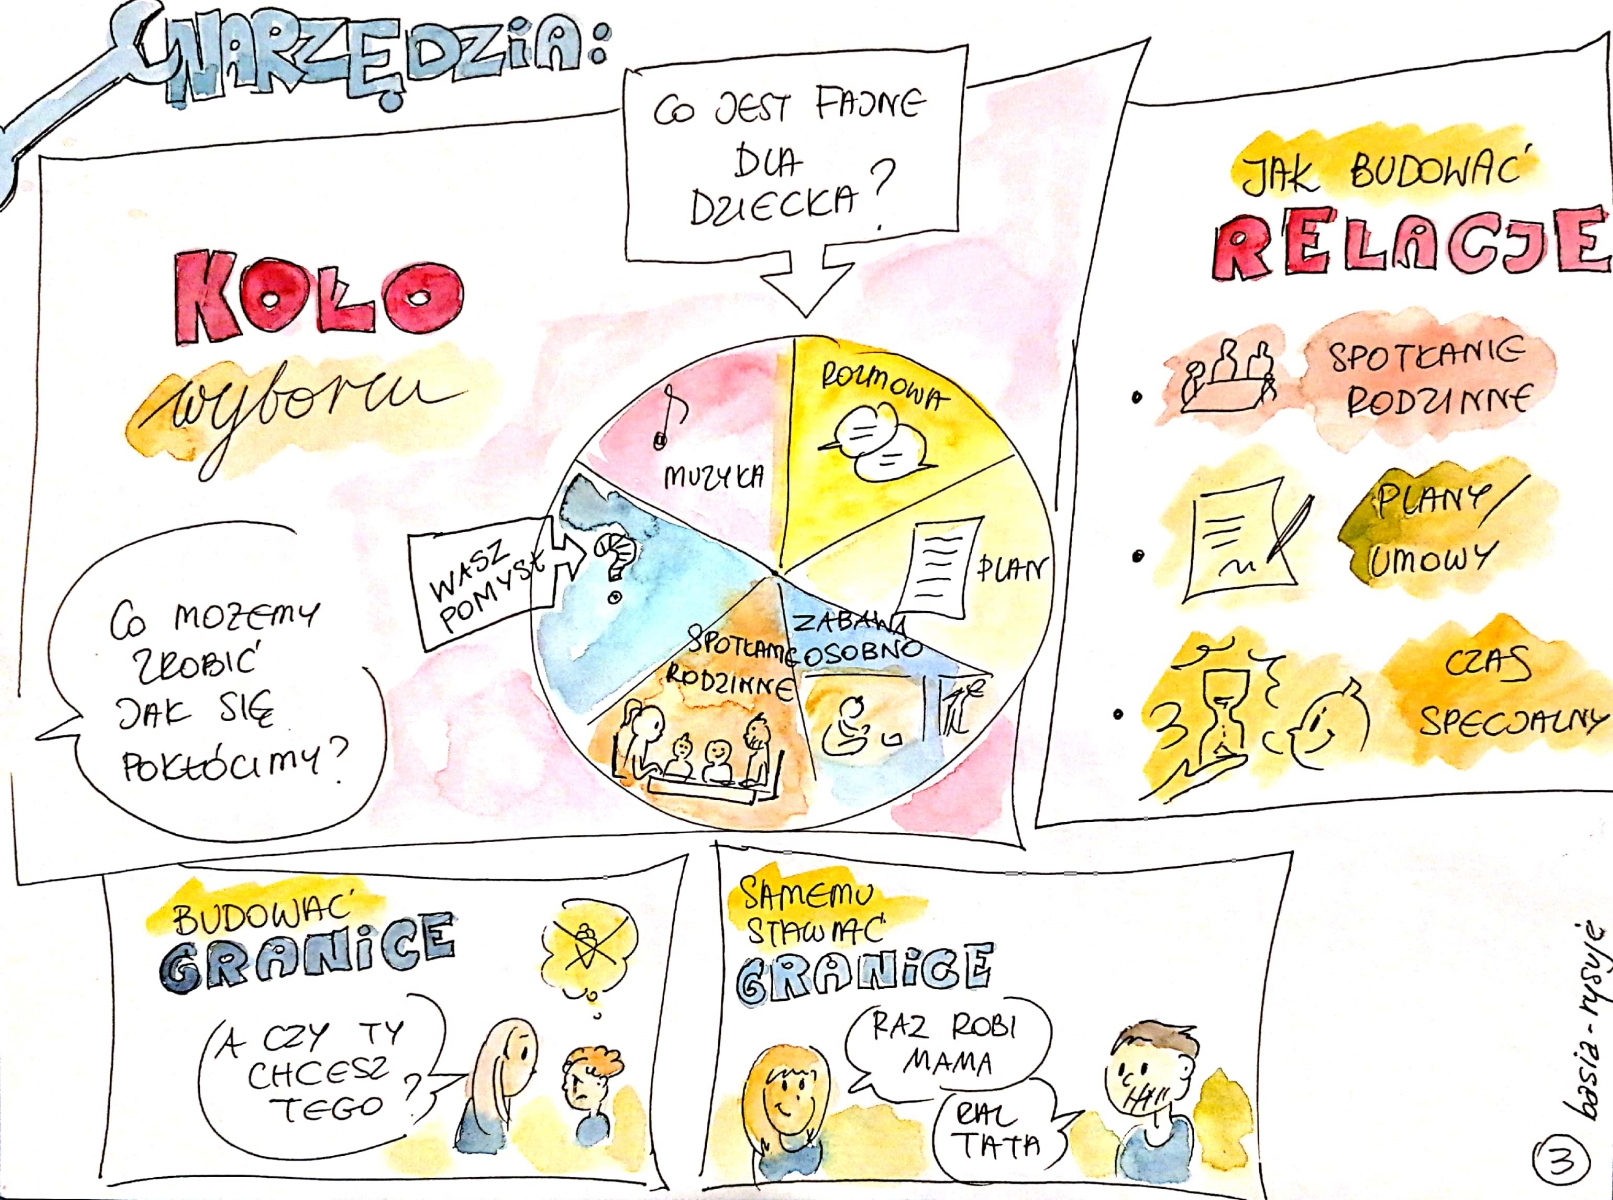 NARZĘDZIA:
CO JEST FAJNE
DLA
DZIECKA?
KOŁO
wyboru
CO MOŻEMY
ZROBIĆ
JAK SIĘ
POKŁÓCIMY?
WASZ
POMYSŁ
MUZYKA
ROZMOWA
PLAN
ZABAWA
OSOBNO
SPOTKANIE
RODZINNE
JAK BUDOWAĆ
RELACJE
SPOTKANIE
RODZINNE
PLANY/
UMOWY
CZAS
SPECJALNY
BUDOWAĆ
GRANICE
A CZY TY
CHCESZ
TEGO?
SAMEMU
STAWIAĆ
GRANICE
RAZ ROBI
MAMA
RAZ
TATA
basia-rysuje
3